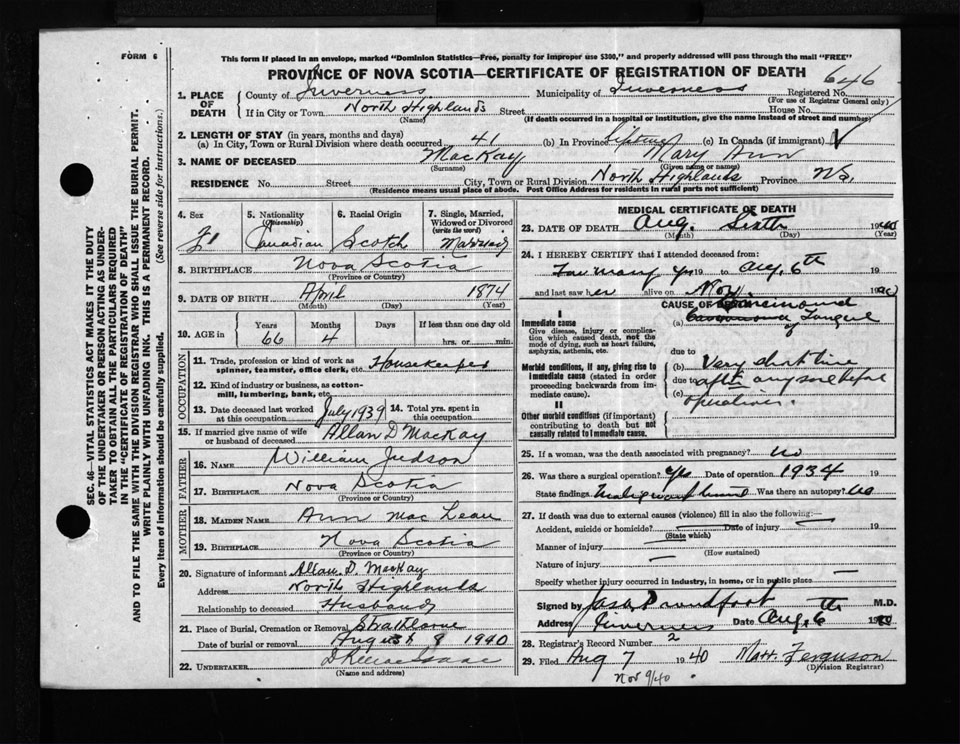 FORM 6
This form if placed in an envelope, marked "Dominion Statistics—Free, penalty for improper use $300," and properly addressed will pass through the mail "FREE"
PROVINCE OF NOVA SCOTIA—CERTIFICATE OF REGISTRATION OF DEATH 646
1. PLACE OF DEATH
County of Inverness Municipality of Inverness Registered No.
(For use of Registrar General only)
If in City or Town North Highlands Street House No.
(Name) (If death occurred in a hospital or institution, give the name instead of street and number)
2. LENGTH OF STAY (in years, months and days)
(a) In City, Town or Rural Division where death occurred 41 (b) In Province lifetime (c) In Canada (if immigrant)
3. NAME OF DECEASED MacKay Mary Ann
(Surname) (Given name or names)
RESIDENCE No. Street City, Town or Rural Division North Highlands Province N.S.
(Residence means usual place of abode. Post Office Address for residents in rural parts not sufficient)
4. Sex F.
5. Nationality (Citizenship) Canadian
6. Racial Origin Scotch
7. Single, Married, Widowed or Divorced (write the word) Married
8. BIRTHPLACE Nova Scotia
(Province or Country)
9. DATE OF BIRTH April 1874
(Month) (Day) (Year)
10. AGE in Years Months Days If less than one day old
66 4 hrs. or min.
OCCUPATION
11. Trade, profession or kind of work as spinner, teamster, office clerk, etc. Housekeeper
12. Kind of industry or business, as cotton-mill, lumbering, bank, etc.
13. Date deceased last worked at this occupation July 1939 14. Total yrs. spent in this occupation
15. If married give name of wife or husband of deceased Allan D MacKay
FATHER
16. NAME William Judson
17. BIRTHPLACE Nova Scotia
(Province or Country)
MOTHER
18. MAIDEN NAME Ann MacLean
19. BIRTHPLACE Nova Scotia
(Province or Country)
20. Signature of informant Allan D. MacKay
Address North Highlands
Relationship to deceased Husband
21. Place of Burial, Cremation or Removal Strathlorne
Date of burial or removal August 8 1940
22. UNDERTAKER
(Name and address)
MEDICAL CERTIFICATE OF DEATH
23. DATE OF DEATH Aug. Sixth 1940
(Month) (Day) (Year)
24. I HEREBY CERTIFY that I attended deceased from:
For many yrs 19 to Aug. 6th 19
and last saw her alive on Nov. 19
CAUSE OF
I
Immediate cause
Give disease, injury or complication which caused death, not the mode of dying, such as heart failure, asphyxia, asthenia, etc.
(a) of Tongue
due to
Morbid conditions, if any, giving rise to immediate cause (stated in order proceeding backwards from immediate cause).
(b) Very short time
due to after any sore before
(c) operation.
II
Other morbid conditions (if important) contributing to death but not causally related to immediate cause.
25. If a woman, was the death associated with pregnancy? no
26. Was there a surgical operation? yes Date of operation 1934 19
State findings Was there an autopsy? no
27. If death was due to external causes (violence) fill in also the following:—
Accident, suicide or homicide? Date of injury 19
(State which)
Manner of injury
(How sustained)
Nature of injury
Specify whether injury occurred in industry, in home, or in public place
Signed by Jas. Proudfoot M.D.
Address Inverness Date Aug. 6th 19
28. Registrar's Record Number 2
29. Filed Aug 7 1940 Matt. Ferguson
(Division Registrar)
Nov 9/40
SEC. 46—VITAL STATISTICS ACT MAKES IT THE DUTY
OF THE UNDERTAKER OR PERSON ACTING AS UNDER-
TAKER TO OBTAIN ALL THE PARTICULARS REQUIRED
IN THE "CERTIFICATE OF REGISTRATION OF DEATH"
AND TO FILE THE SAME WITH THE DIVISION REGISTRAR WHO SHALL ISSUE THE BURIAL PERMIT.
WRITE PLAINLY WITH UNFADING INK. THIS IS A PERMANENT RECORD.
Every item of information should be carefully supplied. (See reverse side for instructions.)